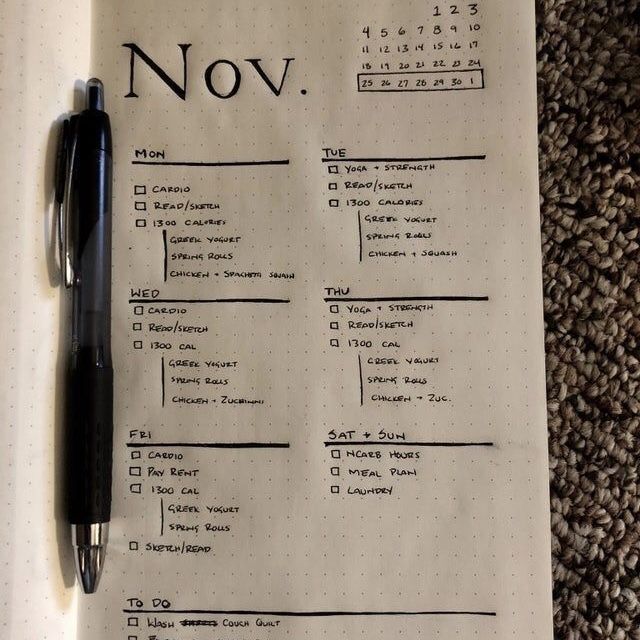 Nov.
1 2 3
4 5 6 7 8 9 10
11 12 13 14 15 16 17
18 19 20 21 22 23 24
25 26 27 28 29 30 1
MON
CARDIO
READ/SKETCH
1300 CALORIES
GREEK YOGURT
SPRING ROLLS
CHICKEN + SPAGHETTI SQUASH
TUE
YOGA + STRENGTH
READ/SKETCH
1300 CALORIES
GREEK YOGURT
SPRING ROLLS
CHICKEN + SQUASH
WED
CARDIO
READ/SKETCH
1300 CAL
GREEK YOGURT
SPRING ROLLS
CHICKEN + ZUCHINNI
THU
YOGA + STRENGTH
READ/SKETCH
1300 CAL
GREEK YOGURT
SPRING ROLLS
CHICKEN + ZUC.
FRI
CARDIO
PAY RENT
1300 CAL
GREEK YOGURT
SPRING ROLLS
SKETCH/READ
SAT + SUN
NCARB HOURS
MEAL PLAN
LAUNDRY
TO DO
WASH COUCH QUILT